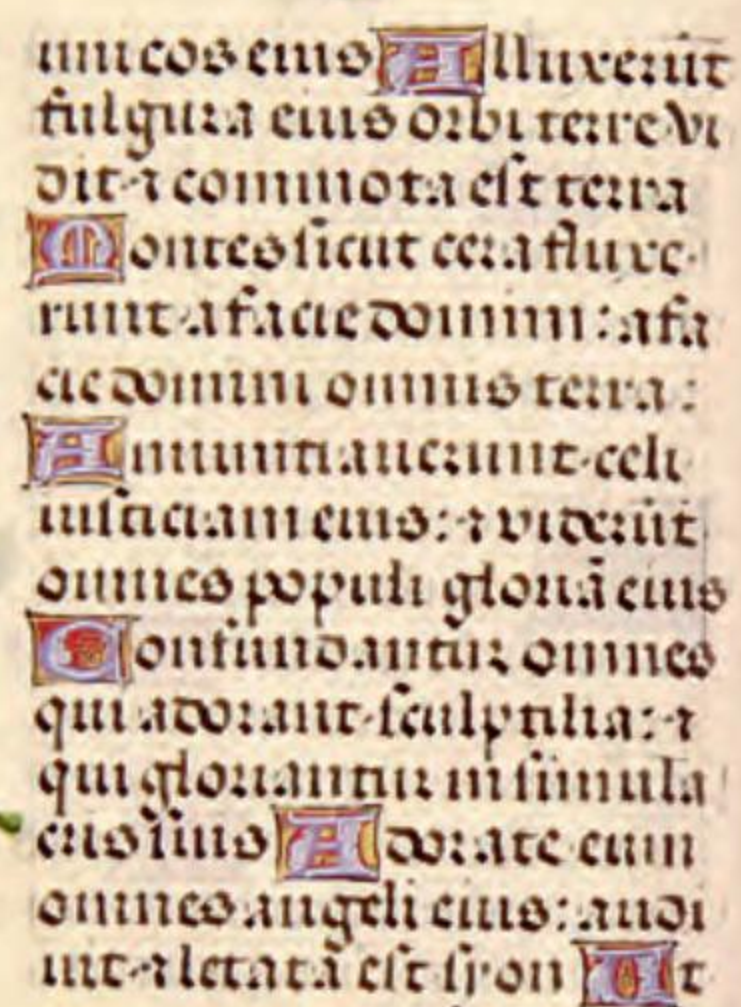 imicos eius Alluxerūt
fulgura eius orbi terre vi
dit ⁊ commota est terra
Montes sicut cera fluxe
runt a facie domini : a fa
cie domini omnis terra :
Annuntiauerunt celi
iusticiam eius : ⁊ viderūt
omnes populi gloriā eius
Confundantur omnes
qui adorant sculptilia : ⁊
qui gloriantur in simula
cris suis Adorate eum
omnes angeli eius : audi
uit ⁊ letata ē est syon Et